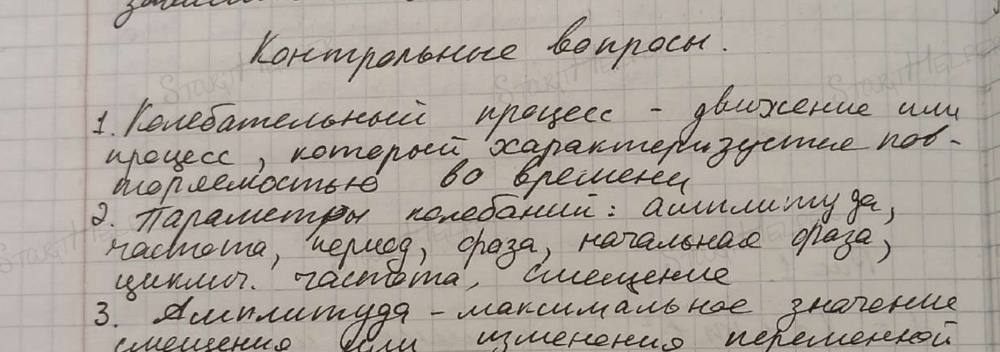 Контрольные вопросы.
1. Колебательный процесс - движение или
процесс, который характеризуется пов-
торяемостью во времени
2. Параметры колебаний: амплитуда,
частота, период, фаза, начальная фаза,
циклич. частота, смещение
3. Амплитуда - максимальное значение
смещения или изменения переменной